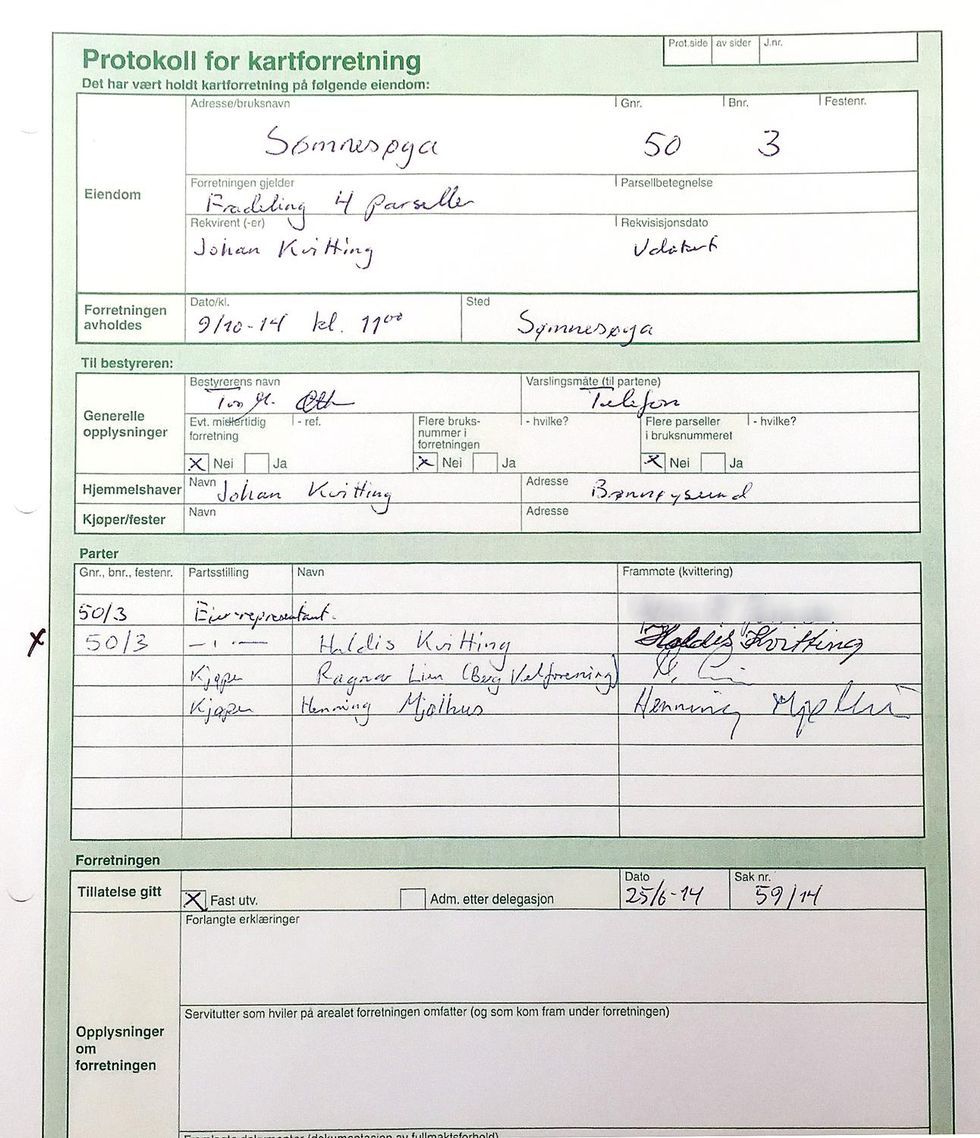 Prot.side av sider J.nr.
Protokoll for kartforretning
Det har vært holdt kartforretning på følgende eiendom:
Adresse/bruksnavn Gnr. Bnr. Festenr.
Sømnesøya 50 3
Eiendom
Forretningen gjelder Parsellbetegnelse
Fradeling 4 parseller
Rekvirent (-er) Rekvisisjonsdato
Johan Kvitting Udatert
Forretningen avholdes
Dato/kl. Sted
9/10-14 kl. 11⁰⁰ Sømnesøya
Til bestyreren:
Generelle opplysninger
Bestyrerens navn Varslingsmåte (til partene)
Telefon
Evt. midlertidig forretning - ref. Flere bruks-nummer i forretningen - hvilke? Flere parseller i bruksnummeret - hvilke?
x Nei Ja x Nei Ja x Nei Ja
Hjemmelshaver Navn Johan Kvitting Adresse Brønnøysund
Kjøper/fester Navn Adresse
Parter
Gnr., bnr., festenr. Partsstilling Navn Frammøte (kvittering)
50/3 Eier-representant.
x 50/3 -"- Haldis Kvitting Haldis Kvitting
Kjøper Ragnar Lien (Berg Velforening)
Kjøper Henning Mjølhus Henning Mjølhus
Forretningen
Tillatelse gitt x Fast utv. Adm. etter delegasjon Dato 25/6-14 Sak nr. 59/14
Forlangte erklæringer
Opplysninger om forretningen
Servitutter som hviler på arealet forretningen omfatter (og som kom fram under forretningen)
Framlagte dokumenter (dokumentasjon av fullmaktsforhold)